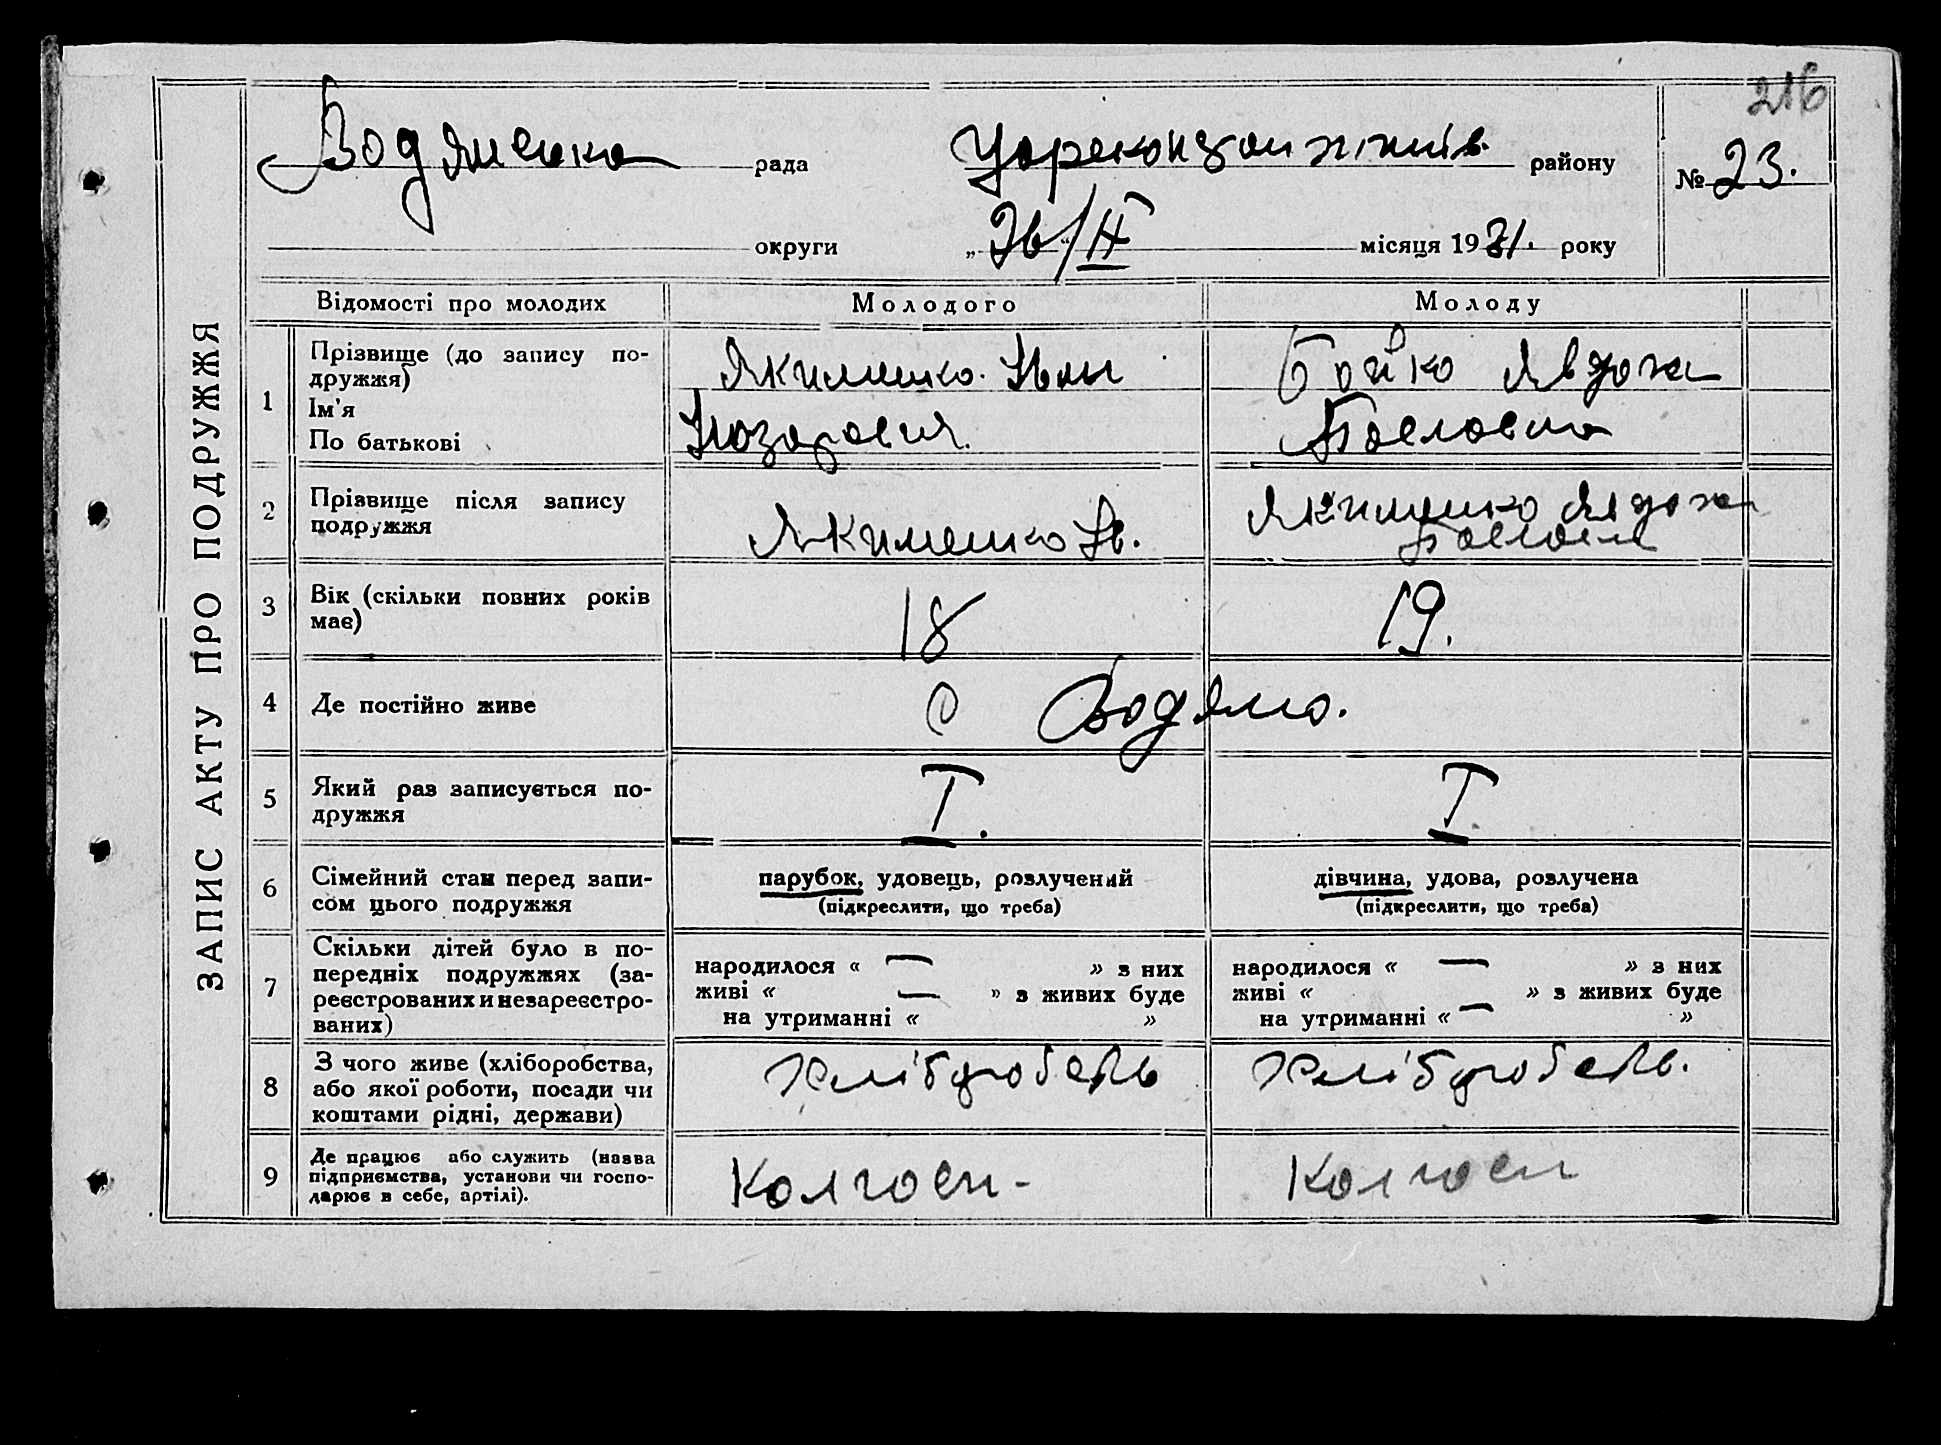 216
Водянська рада
району
№ 23.
округи „26/II“ місяця 1931. року
ЗАПИС АКТУ ПРО ПОДРУЖЖЯ
Відомості про молодих
Молодого
Молоду
1
Прізвище (до запису по-
дружжя)
Ім'я
По батькові
Якименко Іван
Назарович.
Бойко Явдоха
Павловна
2
Прізвище після запису
подружжя
Якименко Ів.
Якименко Явдоха
Павловна
3
Вік (скільки повних років
має)
18
19.
4
Де постійно живе
с Водяно.
5
Який раз записується по-
дружжя
I.
I
6
Сімейний стан перед запи-
сом цього подружжя
парубок, удовець, розлучений
(підкреслити, що треба)
дівчина, удова, розлучена
(підкреслити, що треба)
7
Скільки дітей було в по-
передніх подружжях (за-
реєстрованих и незареєстро-
ваних)
народилося « — » з них
живі « — » з живих буде
на утриманні « »
народилося « — » з них
живі « » з живих буде
на утриманні « — »
8
З чого живе (хліборобства,
або якої роботи, посади чи
коштами рідні, держави)
Хліборобств
Хліборобств.
9
Де працює або служить (назва
підприємства, установи чи госпо-
дарює в себе, артілі).
Колгосп-
Колгосп